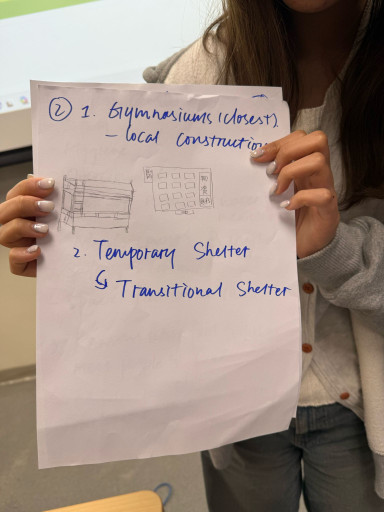 ② 1. Gymnasiums (closest).
– local construction
2. Temporary Shelter
↳ Transitional Shelter